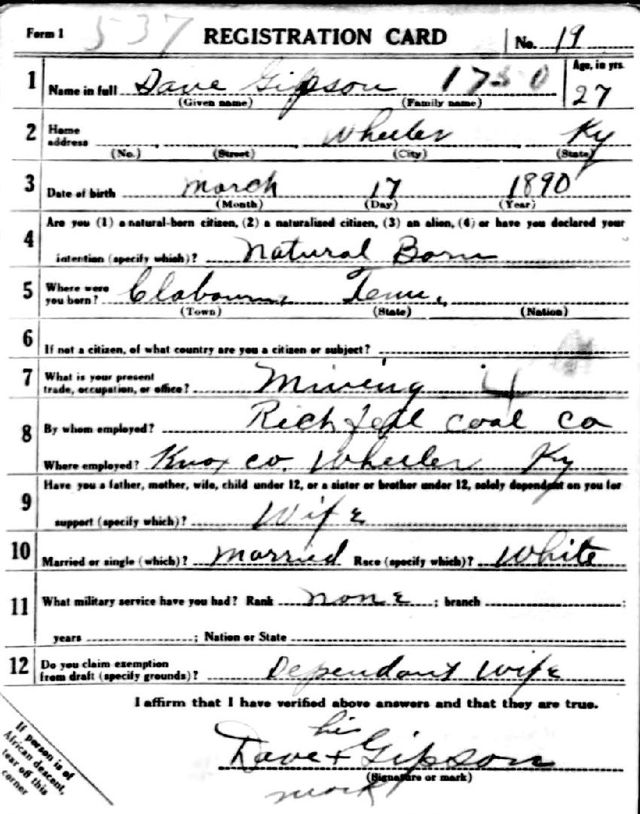 Form 1 537 REGISTRATION CARD No. 19
1 Name in full Dave Gipson Age, in yrs.
(Given name) (Family name) 27
2 Home address Wheeler Ky
(No.) (Street) (City) (State)
3 Date of birth March 17 1890
(Month) (Day) (Year)
4 Are you (1) a natural-born citizen, (2) a naturalized citizen, (3) an alien, (4) or have you declared your
intention (specify which)? Natural Born
5 Where were you born? Clabourn, Tenn,
(Town) (State) (Nation)
6 If not a citizen, of what country are you a citizen or subject?
7 What is your present trade, occupation, or office? Mineing 4
8 By whom employed? Coal Co
Where employed? Knox Co. Wheeler Ky
9 Have you a father, mother, wife, child under 12, or a sister or brother under 12, solely dependent on you for
support (specify which)? Wife
10 Married or single (which)? Married Race (specify which)? White
11 What military service have you had? Rank none ; branch ;
years ; Nation or State
12 Do you claim exemption from draft (specify grounds)? Dependant wife
I affirm that I have verified above answers and that they are true.
his
Dave + Gipson
(Signature or mark)
mark
If person is of
African descent,
tear off this
corner